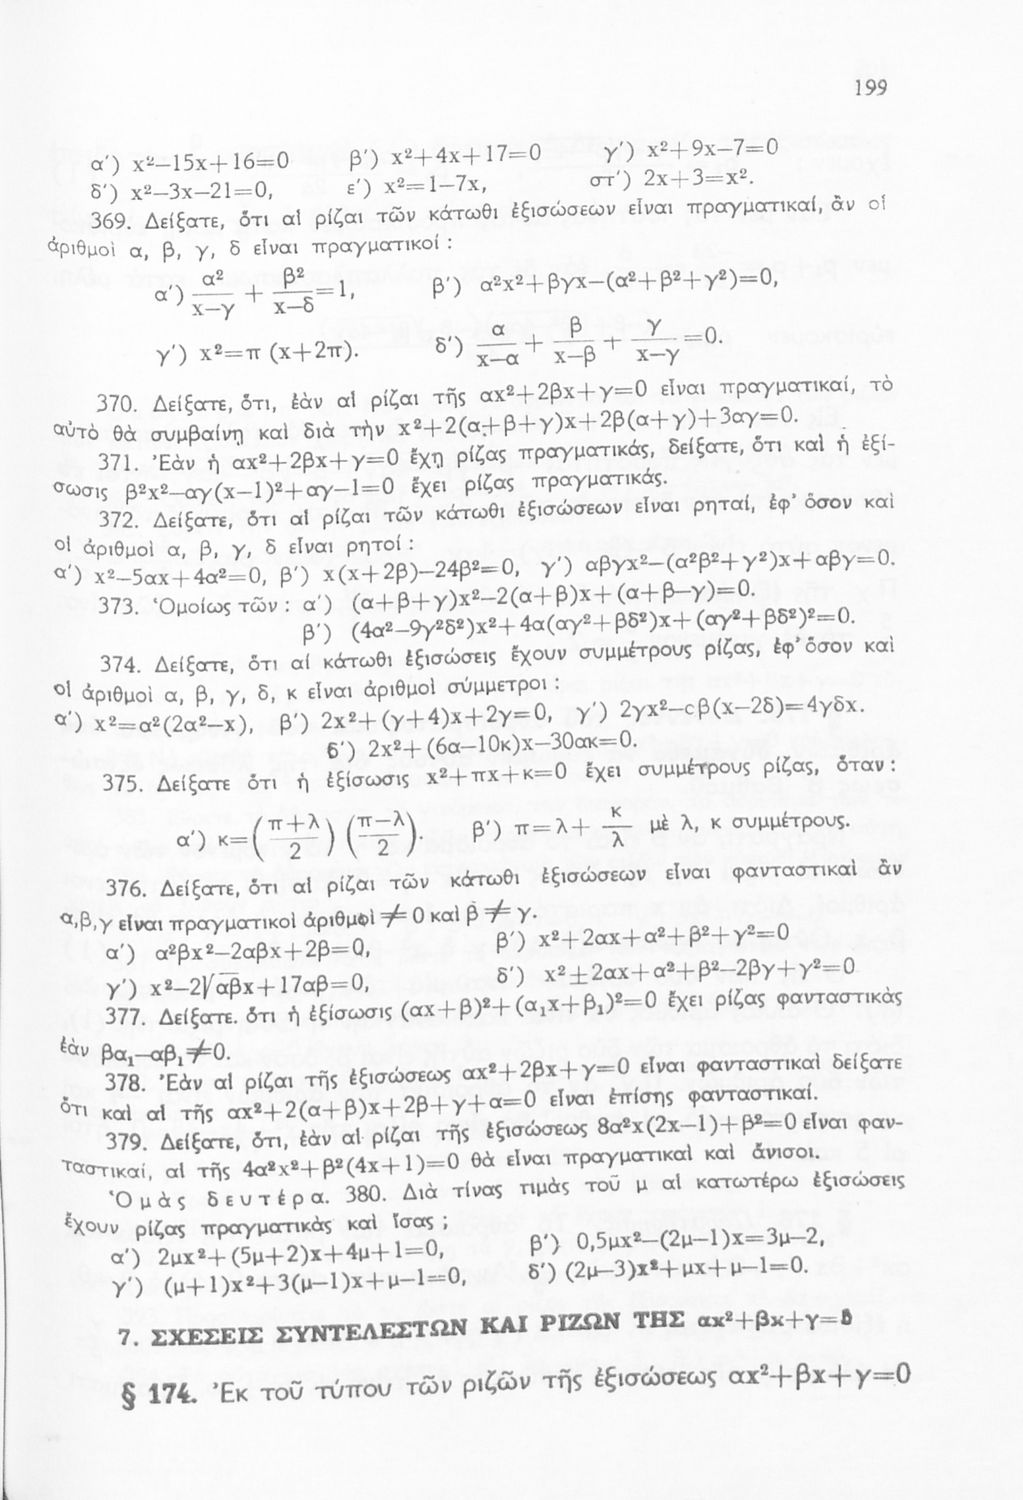 199
α') x²—15x+16=0 β') x²+4x+17=0 γ') x²+9x—7=0
δ') x²—3x—21=0, ε') x²=1—7x, στ') 2x+3=x².
369. Δείξατε, ὅτι αἱ ρίζαι τῶν κάτωθι ἐξισώσεων εἶναι πραγματικαί, ἂν οἱ
ἀριθμοὶ α, β, γ, δ εἶναι πραγματικοί :
α') α²/(x—γ) + β²/(x—δ) = 1, β') α²x²+βγx—(α²+β²+γ²)=0,
γ') x²=π (x+2π). δ') α/(x—α) + β/(x—β) + γ/(x—γ) =0.
370. Δείξατε, ὅτι, ἐὰν αἱ ρίζαι τῆς αx²+2βx+γ=0 εἶναι πραγματικαί, τὸ
αὐτὸ θὰ συμβαίνῃ καὶ διὰ τὴν x²+2(α+β+γ)x+2β(α+γ)+3αγ=0.
371. Ἐὰν ἡ αx²+2βx+γ=0 ἔχῃ ρίζας πραγματικάς, δείξατε, ὅτι καὶ ἡ ἐξί-
σωσις β²x²—αγ(x—1)²+αγ—1=0 ἔχει ρίζας πραγματικάς.
372. Δείξατε, ὅτι αἱ ρίζαι τῶν κάτωθι ἐξισώσεων εἶναι ρηταί, ἐφ' ὅσον καὶ
οἱ ἀριθμοὶ α, β, γ, δ εἶναι ρητοί :
α') x²—5αx+4α²=0, β') x(x+2β)—24β²=0, γ') αβγx²—(α²β²+γ²)x+αβγ=0.
373. Ὁμοίως τῶν : α') (α+β+γ)x²—2(α+β)x+(α+β—γ)=0.
β') (4α²—9γ²δ²)x²+4α(αγ²+βδ²)x+(αγ²+βδ²)²=0.
374. Δείξατε, ὅτι αἱ κάτωθι ἐξισώσεις ἔχουν συμμέτρους ρίζας, ἐφ' ὅσον καὶ
οἱ ἀριθμοὶ α, β, γ, δ, κ εἶναι ἀριθμοὶ σύμμετροι :
α') x²=α²(2α²—x), β') 2x²+(γ+4)x+2γ=0, γ') 2γx²—cβ(x—2δ)=4γδx.
δ') 2x²+(6α—10κ)x—30ακ=0.
375. Δείξατε ὅτι ἡ ἐξίσωσις x²+πx+κ=0 ἔχει συμμέτρους ρίζας, ὅταν :
α') κ=((π+λ)/2) ((π—λ)/2). β') π=λ+ κ/λ μὲ λ, κ συμμέτρους.
376. Δείξατε, ὅτι αἱ ρίζαι τῶν κάτωθι ἐξισώσεων εἶναι φανταστικαὶ ἂν
α,β,γ εἶναι πραγματικοὶ ἀριθμοὶ ≠ 0 καὶ β ≠ γ.
α') α²βx²—2αβx+2β=0, β') x²+2αx+α²+β²+γ²=0
γ') x²—2√αβx+17αβ=0, δ') x²±2αx+α²+β²—2βγ+γ²=0
377. Δείξατε. ὅτι ἡ ἐξίσωσις (αx+β)²+(α₁x+β₁)²=0 ἔχει ρίζας φανταστικὰς
ἐὰν βα₁—αβ₁≠0.
378. Ἐὰν αἱ ρίζαι τῆς ἐξισώσεως αx²+2βx+γ=0 εἶναι φανταστικαὶ δείξατε
ὅτι καὶ αἱ τῆς αx²+2(α+β)x+2β+γ+α=0 εἶναι ἐπίσης φανταστικαί.
379. Δείξατε, ὅτι, ἐὰν αἱ ρίζαι τῆς ἐξισώσεως 8α²x(2x—1)+β²=0 εἶναι φαν-
ταστικαί, αἱ τῆς 4α²x²+β²(4x+1)=0 θὰ εἶναι πραγματικαὶ καὶ ἄνισοι.
Ὁμὰς δευτέρα. 380. Διὰ τίνας τιμὰς τοῦ μ αἱ κατωτέρω ἐξισώσεις
ἔχουν ρίζας πραγματικὰς καὶ ἴσας ;
α') 2μx²+(5μ+2)x+4μ+1=0, β') 0,5μx²—(2μ—1)x=3μ—2,
γ') (μ+1)x²+3(μ—1)x+μ—1=0, δ') (2μ—3)x²+μx+μ—1=0.
7. ΣΧΕΣΕΙΣ ΣΥΝΤΕΛΕΣΤΩΝ ΚΑΙ ΡΙΖΩΝ ΤΗΣ αx²+βx+γ=0
§ 174. Ἐκ τοῦ τύπου τῶν ριζῶν τῆς ἐξισώσεως αx²+βx+γ=0